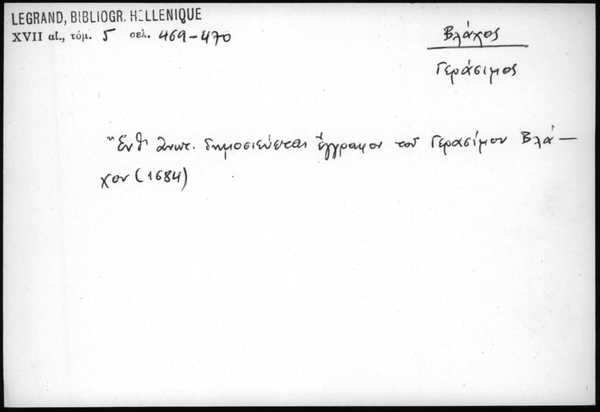 LEGRAND, BIBLIOGR. HELLENIQUE
XVII αἰ., τόμ. 5 σελ. 469-470
Βλάχος
Γεράσιμος
Ἔνθ' ἀνωτ. δημοσιεύεται ἔγγραφον τοῦ Γερασίμου Βλά-
χου (1684)